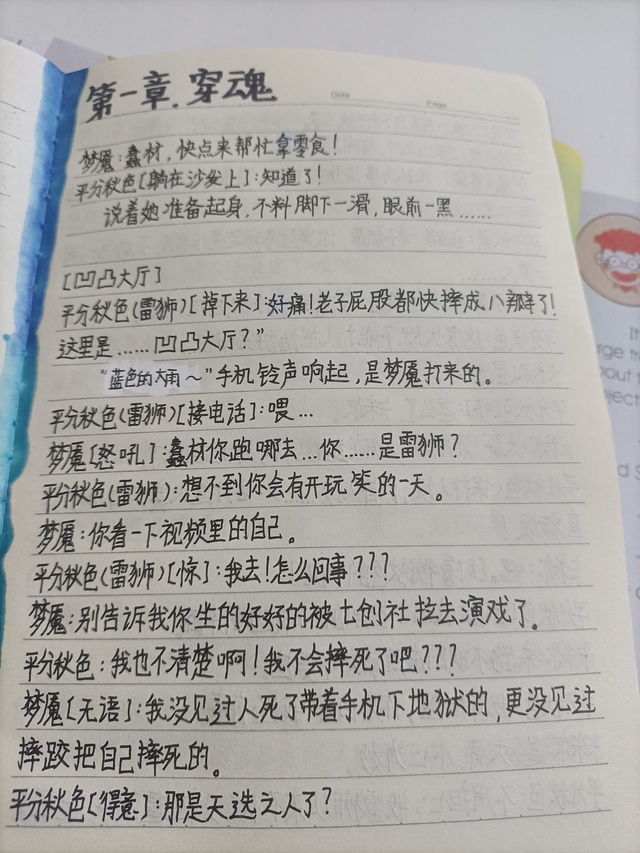 第一章.穿魂
Date
Page
梦魇:蠢材,快点来帮忙拿零食!
平分秋色[躺在沙发上]:知道了!
说着她准备起身,不料脚下一滑,眼前一黑……
[凹凸大厅]
平分秋色(雷狮)[掉下来]:好痛!老子屁股都快摔成八瓣了!
这里是……凹凸大厅?"
"蓝色的大雨~"手机铃声响起,是梦魇打来的。
平分秋色(雷狮)[接电话]:喂…
梦魇[怒吼]:蠢材你跑哪去…你……是雷狮?
平分秋色(雷狮):想不到你会有开玩笑的一天。
梦魇:你看一下视频里的自己。
平分秋色(雷狮)[惊]:我去!怎么回事???
梦魇:别告诉我你生的好好的被七创社拉去演戏了。
平分秋色:我也不清楚啊!我不会摔死了吧???
梦魇[无语]:我没见过人死了带着手机下地狱的,更没见过
摔跤把自己摔死的。
平分秋色[得意]:那是天选之人了?
It
rge tr
bout t
bject
d S